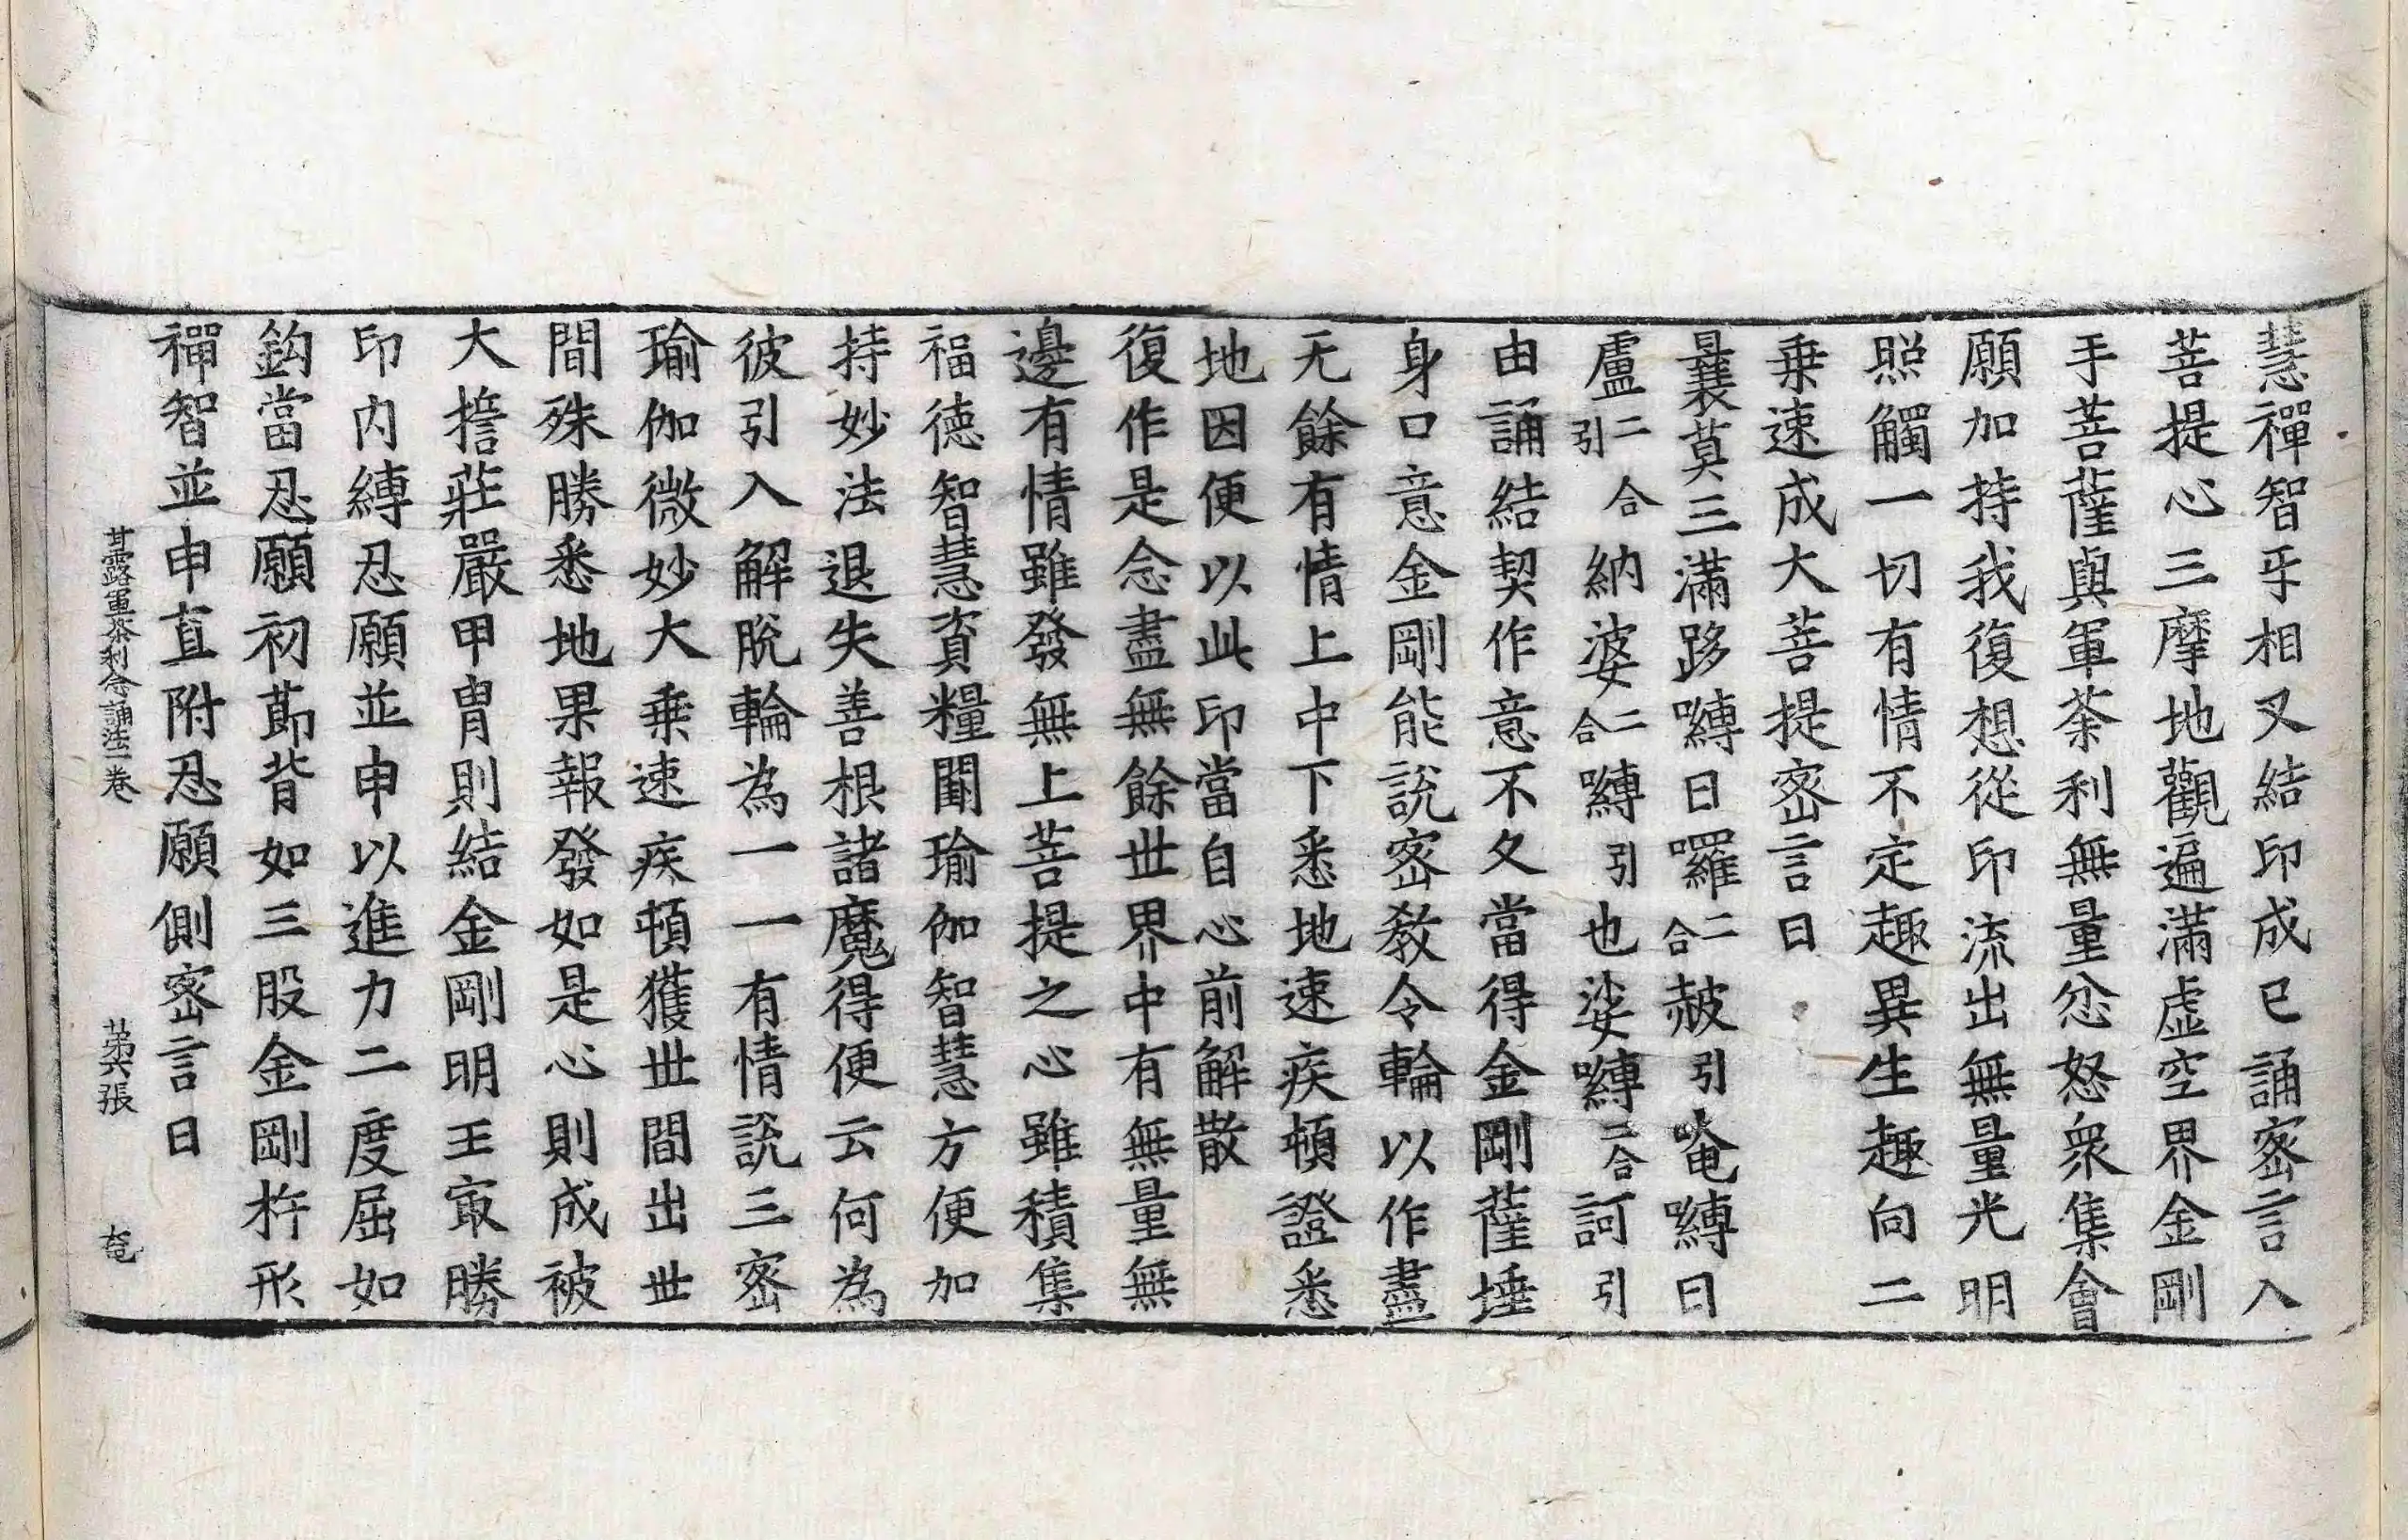 慧禪智㸦相叉結印成已誦密言入
菩提心三摩地觀遍滿虛空界金剛
手菩薩與軍荼利無量忿怒衆集會
願加持我復想從印流出無量光明
照觸一切有情不定趣異生趣向二
乗速成大菩提密言曰
曩莫三滿跢嚩日囉二合赧引唵嚩日
盧二合引納婆二合嚩引也娑嚩二合訶引
由誦結契作意不久當得金剛薩埵
身口意金剛能說密教令輪以作盡
无餘有情上中下悉地速疾頓證悉
地因便以此印當自心前解散
復作是念盡無餘世界中有無量無
邊有情雖發無上菩提之心雖積集
福德智慧資糧闕瑜伽智慧方便加
持妙法退失善根諸魔得便云何為
彼引入解脫輪為一一有情說三密
瑜伽微妙大乗速疾頓獲世間出世
間殊勝悉地果報發如是心則成被
大擔莊嚴甲冑則結金剛明王㝡勝
印內縛忍願並申以進力二度屈如
鈎當忍願初節背如三股金剛杵形
禪智並申直附忍願側密言曰
甘露軍荼利念誦法一卷 苐六張